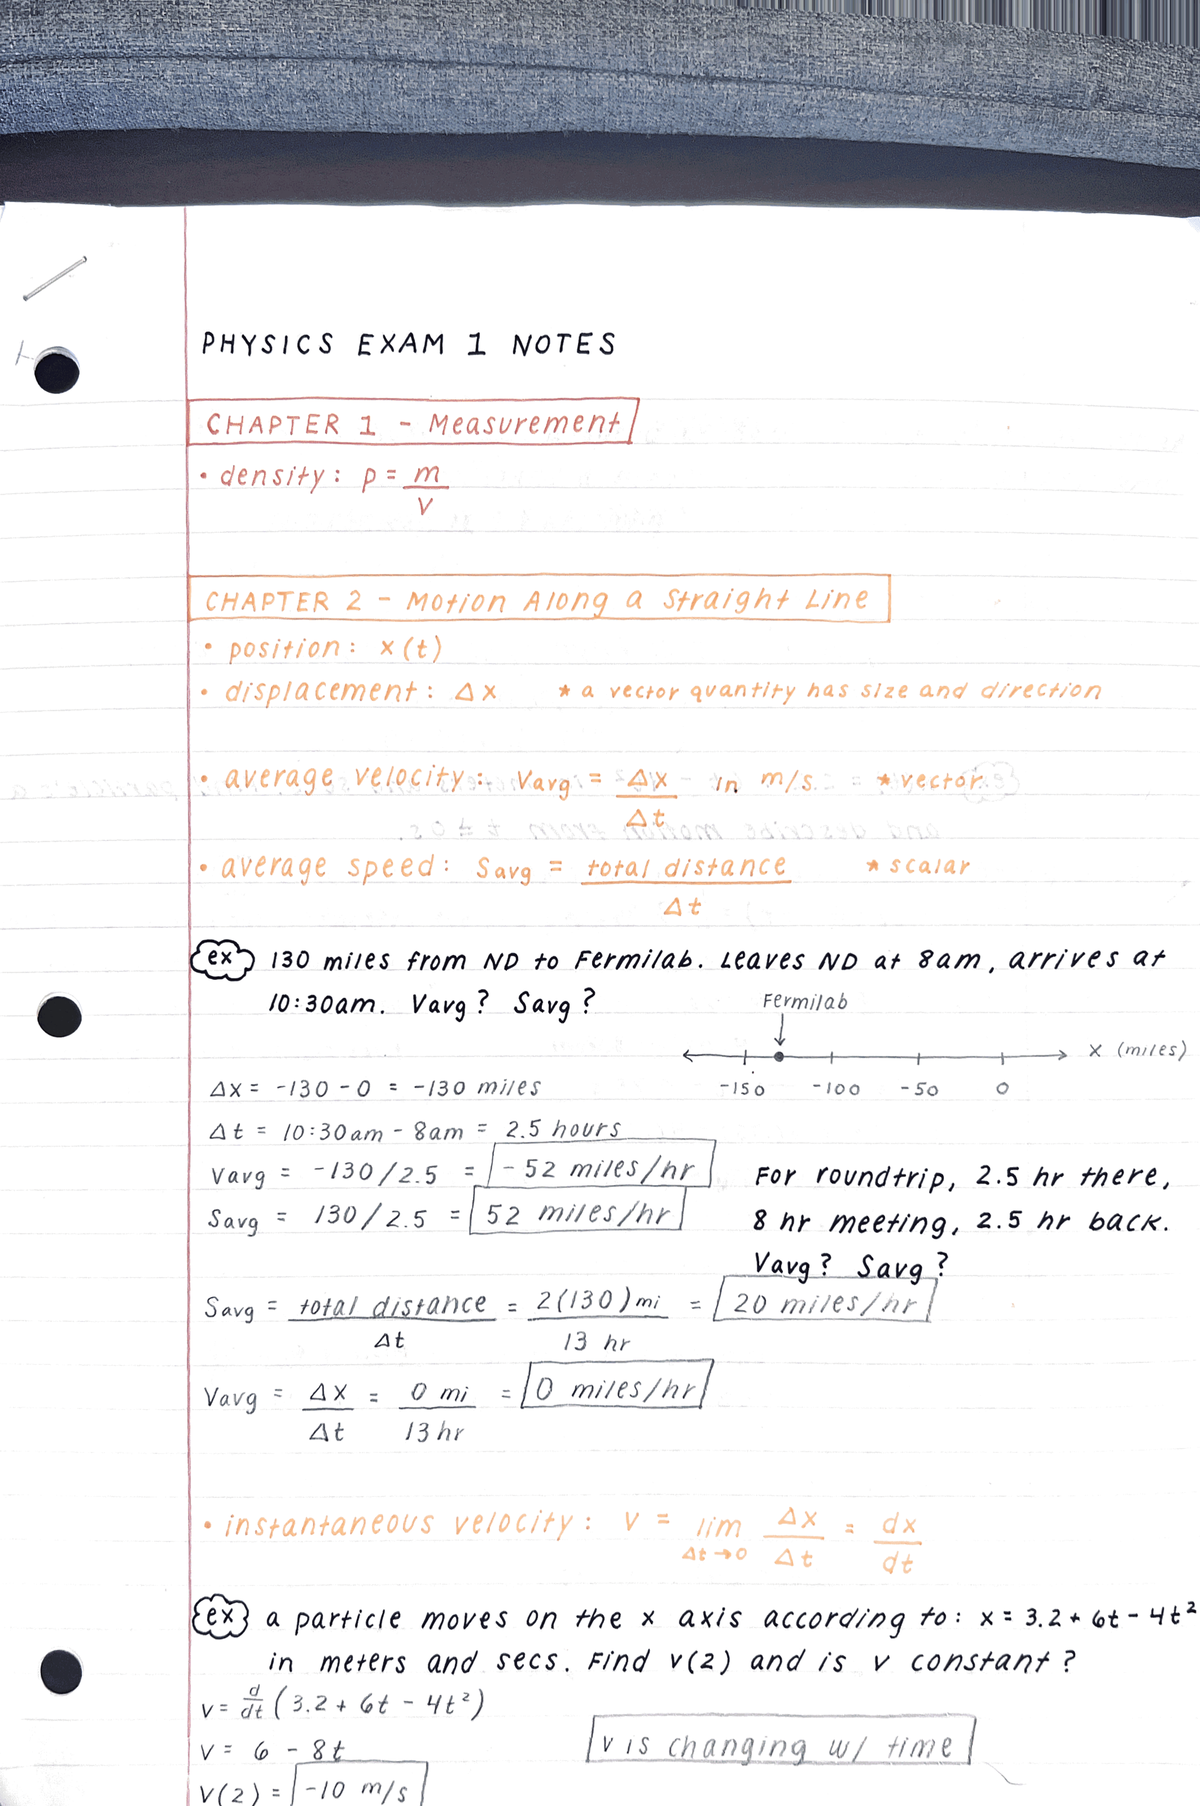 PHYSICS EXAM 1 NOTES
CHAPTER 1 - Measurement
• density: p = m/V
CHAPTER 2 - Motion Along a Straight Line
• position: x(t)
• displacement: Δx * a vector quantity has size and direction
• average velocity: Vavg = Δx/Δt in m/s. * vector
• average speed: Savg = total distance/Δt * scalar
ex 130 miles from ND to Fermilab. Leaves ND at 8am, arrives at
10:30am. Vavg? Savg?
Fermilab
x (miles)
-150 -100 -50 0
Δx = -130 - 0 = -130 miles
Δt = 10:30am - 8am = 2.5 hours
Vavg = -130/2.5 = -52 miles/hr
Savg = 130/2.5 = 52 miles/hr
For roundtrip, 2.5 hr there,
8 hr meeting, 2.5 hr back.
Vavg? Savg?
Savg = total distance/Δt = 2(130)mi/13 hr = 20 miles/hr
Vavg = Δx/Δt = 0 mi/13 hr = 0 miles/hr
• instantaneous velocity: v = lim Δt→0 Δx/Δt = dx/dt
ex a particle moves on the x axis according to: x = 3.2 + 6t - 4t²
in meters and secs. Find v(2) and is v constant?
v = d/dt (3.2 + 6t - 4t²)
v = 6 - 8t
v is changing w/ time
v(2) = -10 m/s